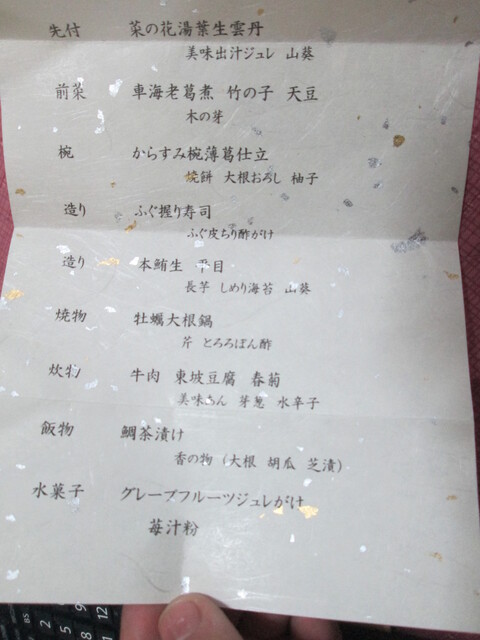 先付 菜の花湯葉生雲丹
美味出汁ジュレ 山葵
前菜 車海老葛煮 竹の子 天豆
木の芽
椀 からすみ椀薄葛仕立
焼餅 大根おろし 柚子
造り ふぐ握り寿司
ふぐ皮ちり酢がけ
造り 本鮪生 平目
長芋 しめり海苔 山葵
焼物 牡蠣大根鍋
芹 とろろぽん酢
炊物 牛肉 東坡豆腐 春菊
美味あん 芽葱 水辛子
飯物 鯛茶漬け
香の物 (大根 胡瓜 芝漬)
水菓子 グレープフルーツジュレがけ
苺汁粉